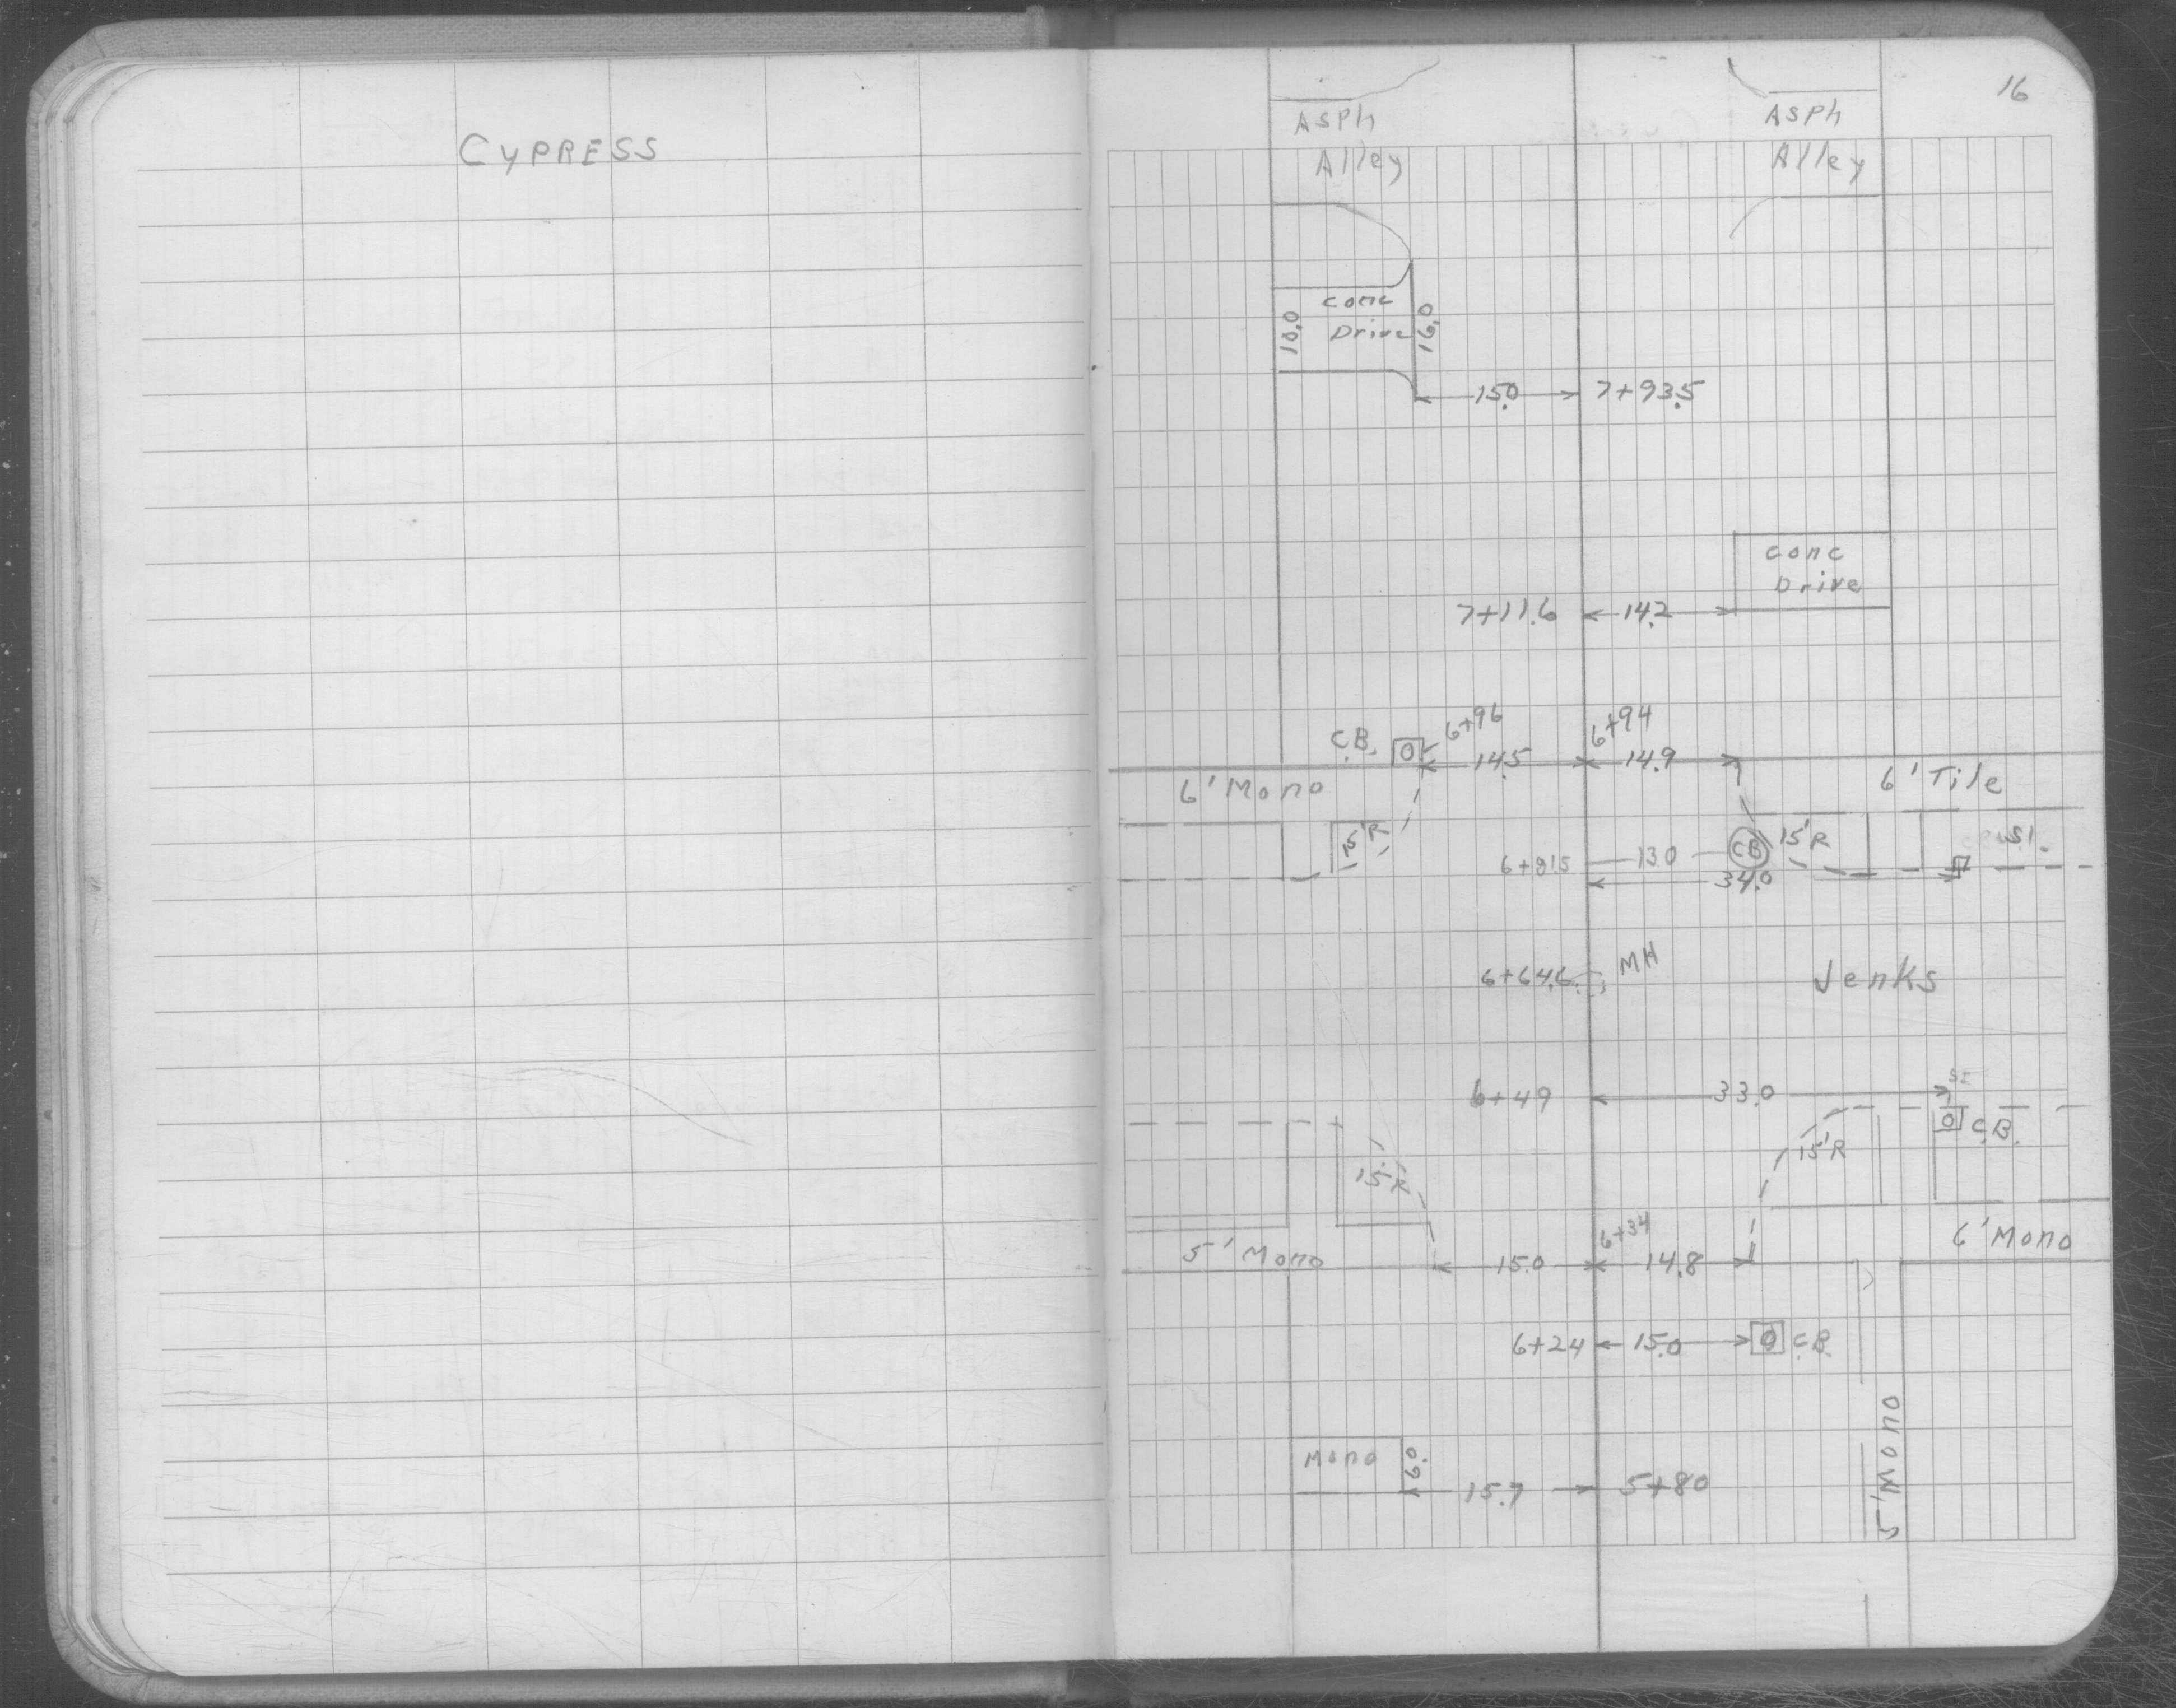 CYPRESS
16
ASPh
Alley
ASPh
Alley
conc
Drive
10.0
16.0
15.0
7+93.5
conc
Drive
7+11.6
14.2
C.B.
6+96
6+94
14.5
14.9
6' Mono
6' Tile
15'R
6+81.5
13.0
CB
15'R
S.I.
34.0
6+64.6
MH
Jenks
6+49
33.0
SI
C.B.
15'R
15'R
5' Mono
6+34
15.0
14.8
6' Mono
6+24
15.0
C.B.
Mono
6.0
15.7
5+80
5' Mono